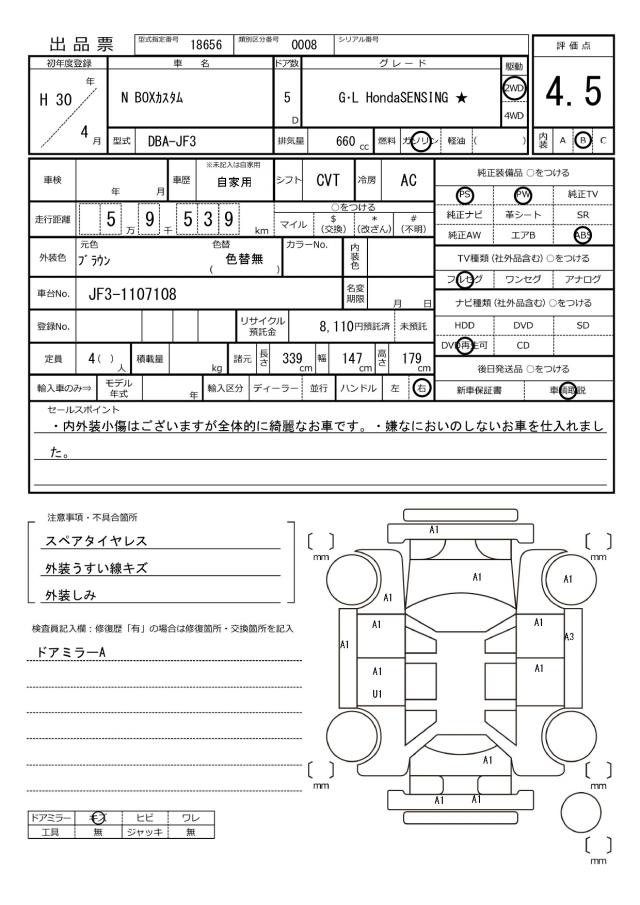 出品票 型式指定番号 18656 類別区分番号 0008 シリアル番号
評価点
4.5
内装 A B C
初年度登録 車名 ドア数 グレード 駆動
H 30 年 4 月 N BOXカスタム 5 D G・L HondaSENSING ★ 2WD
4WD
型式 DBA-JF3 排気量 660 cc 燃料 ガソリン 軽油 ( )
車検 年 月 車歴 ※未記入は自家用 自家用 シフト CVT 冷房 AC
走行距離 5 万 9 千 5 3 9 km ○をつける
マイル $ (交換) * (改ざん) # (不明)
外装色 元色 ブラウン 色替 ( 色替無 ) カラーNo. 内装色
車台No. JF3-1107108 名変期限 月 日
登録No. リサイクル預託金 8,110円預託済 未預託
定員 4( )人 積載量 kg 諸元 長さ 339 cm 幅 147 cm 高さ 179 cm
輸入車のみ⇒ モデル年式 年 輸入区分 ディーラー 並行 ハンドル 左 右
純正装備品 ○をつける
PS PW 純正TV
純正ナビ 革シート SR
純正AW エアB ABS
TV種類 (社外品含む) ○をつける
フルセグ ワンセグ アナログ
ナビ種類 (社外品含む) ○をつける
HDD DVD SD
DVD再生可 CD
後日発送品 ○をつける
新車保証書 車輌取説
セールスポイント
・内外装小傷はございますが全体的に綺麗なお車です。・嫌なにおいのしないお車を仕入れまし
た。
注意事項・不具合箇所
スペアタイヤレス
外装うすい線キズ
外装しみ
検査員記入欄：修復歴「有」の場合は修復箇所・交換箇所を記入
ドアミラーA
ドアミラー キズ ヒビ ワレ
工具 無 ジャッキ 無
A1
〔 〕 mm 〔 〕 mm
A1
A1
A1
A1 A1
A1 A3
A1 A1
U1
A1
〔 〕 mm 〔 〕 mm
A1 A1
〔 〕 mm